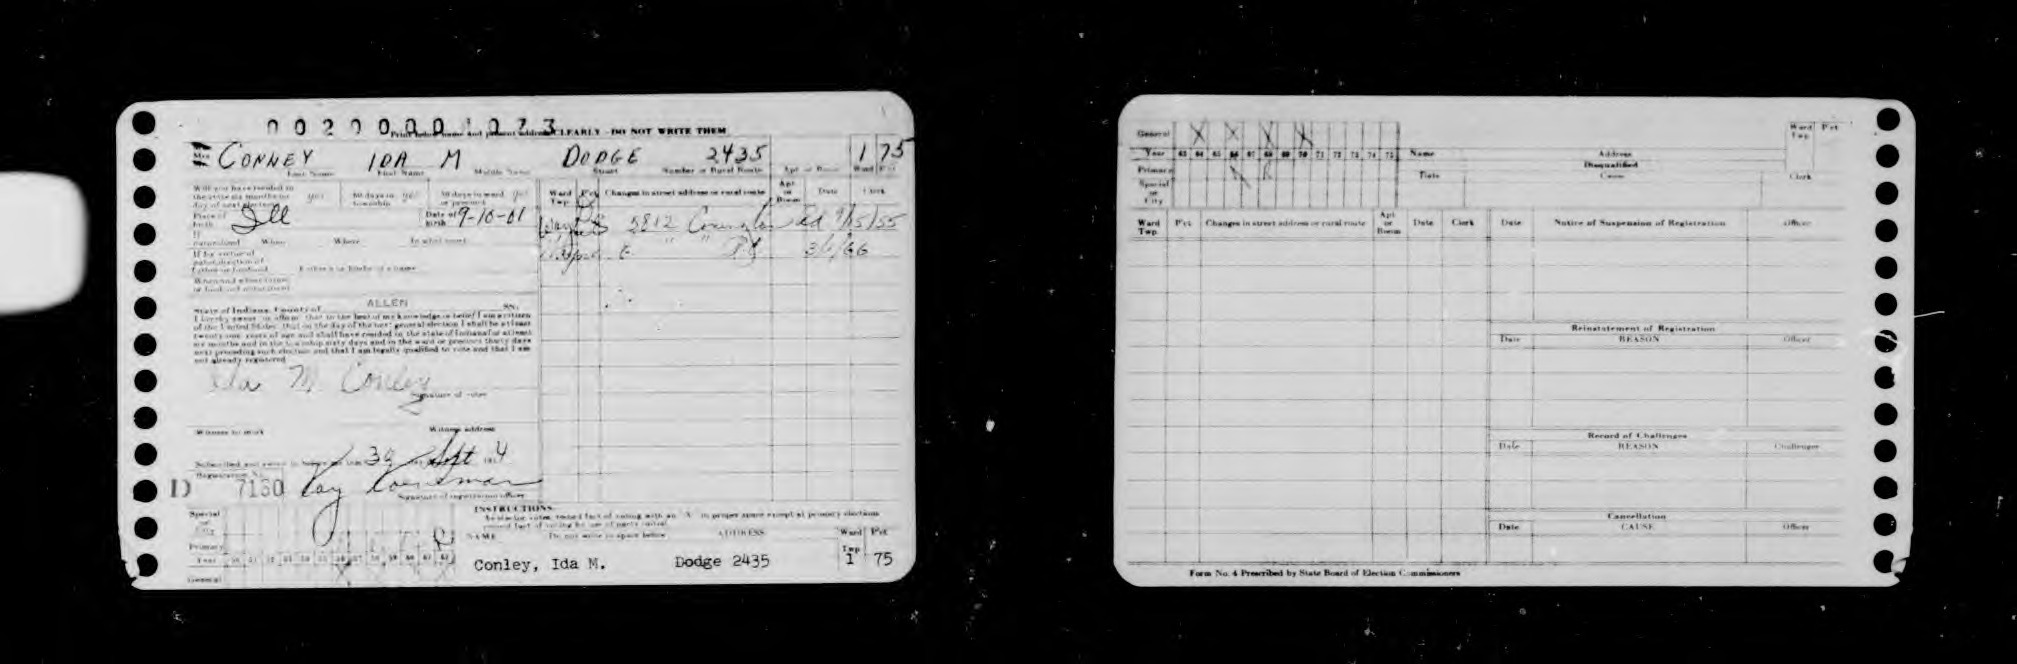 0020001073
Print below name and present address CLEARLY - DO NOT WRITE THEM
Mrs CONNEY IDA M DODGE 2435 1 75
Last Name First Name Middle Name Street Number or Rural Route Apt or Room Ward Pct
Will you have resided in the state six months on day of next election yes 60 days in township yes 30 days in ward or precinct yes
Ward Twp. Pct Changes in street address or rural route Apt or Room Date Clerk
Place of birth Ill Date of birth 9-10-01
Wayne 5812 Covington Rd 9/15/55
If naturalized When Where In what court
Wayne E " " Rd 3/1/66
If by virtue of naturalization of father or husband Father's or Husband's name
When and where
ALLEN
State of Indiana, County of SS.
I hereby swear or affirm that to the best of my knowledge and belief I am a citizen
of the United States, that on the day of the next general election I shall be at least
twenty one years of age and shall have resided in the state of Indiana for at least
six months and in the township sixty days and in the ward or precinct thirty days
next preceding such election and that I am legally qualified to vote and that I am
not already registered
Ida M. Conley
Signature of voter
Witness to mark Witness address
Subscribed and sworn to before me this Sept
Registration No.
D 7160 Ray
Signature of registration officer
INSTRUCTIONS
Special or City
As elector votes, record fact of voting with an "X" in proper space except at primary elections
NAME Do not write in space below ADDRESS Ward Pct
Primary
Year
Twp
Conley, Ida M. Dodge 2435 1 75
General
General X X X X
Year 63 64 65 66 67 68 69 70 71 72 73 74 75 Name Address
Ward Twp. Pct
Primary R R
Disqualified
Date Cause Clerk
Special or City
Ward Twp. Pct Changes in street address or rural route Apt or Room Date Clerk Date Notice of Suspension of Registration Officer
Reinstatement of Registration
Date REASON Officer
Record of Challenges
Date REASON Challenger
Cancellation
Date CAUSE Officer
Form No. 4 Prescribed by State Board of Election Commissioners